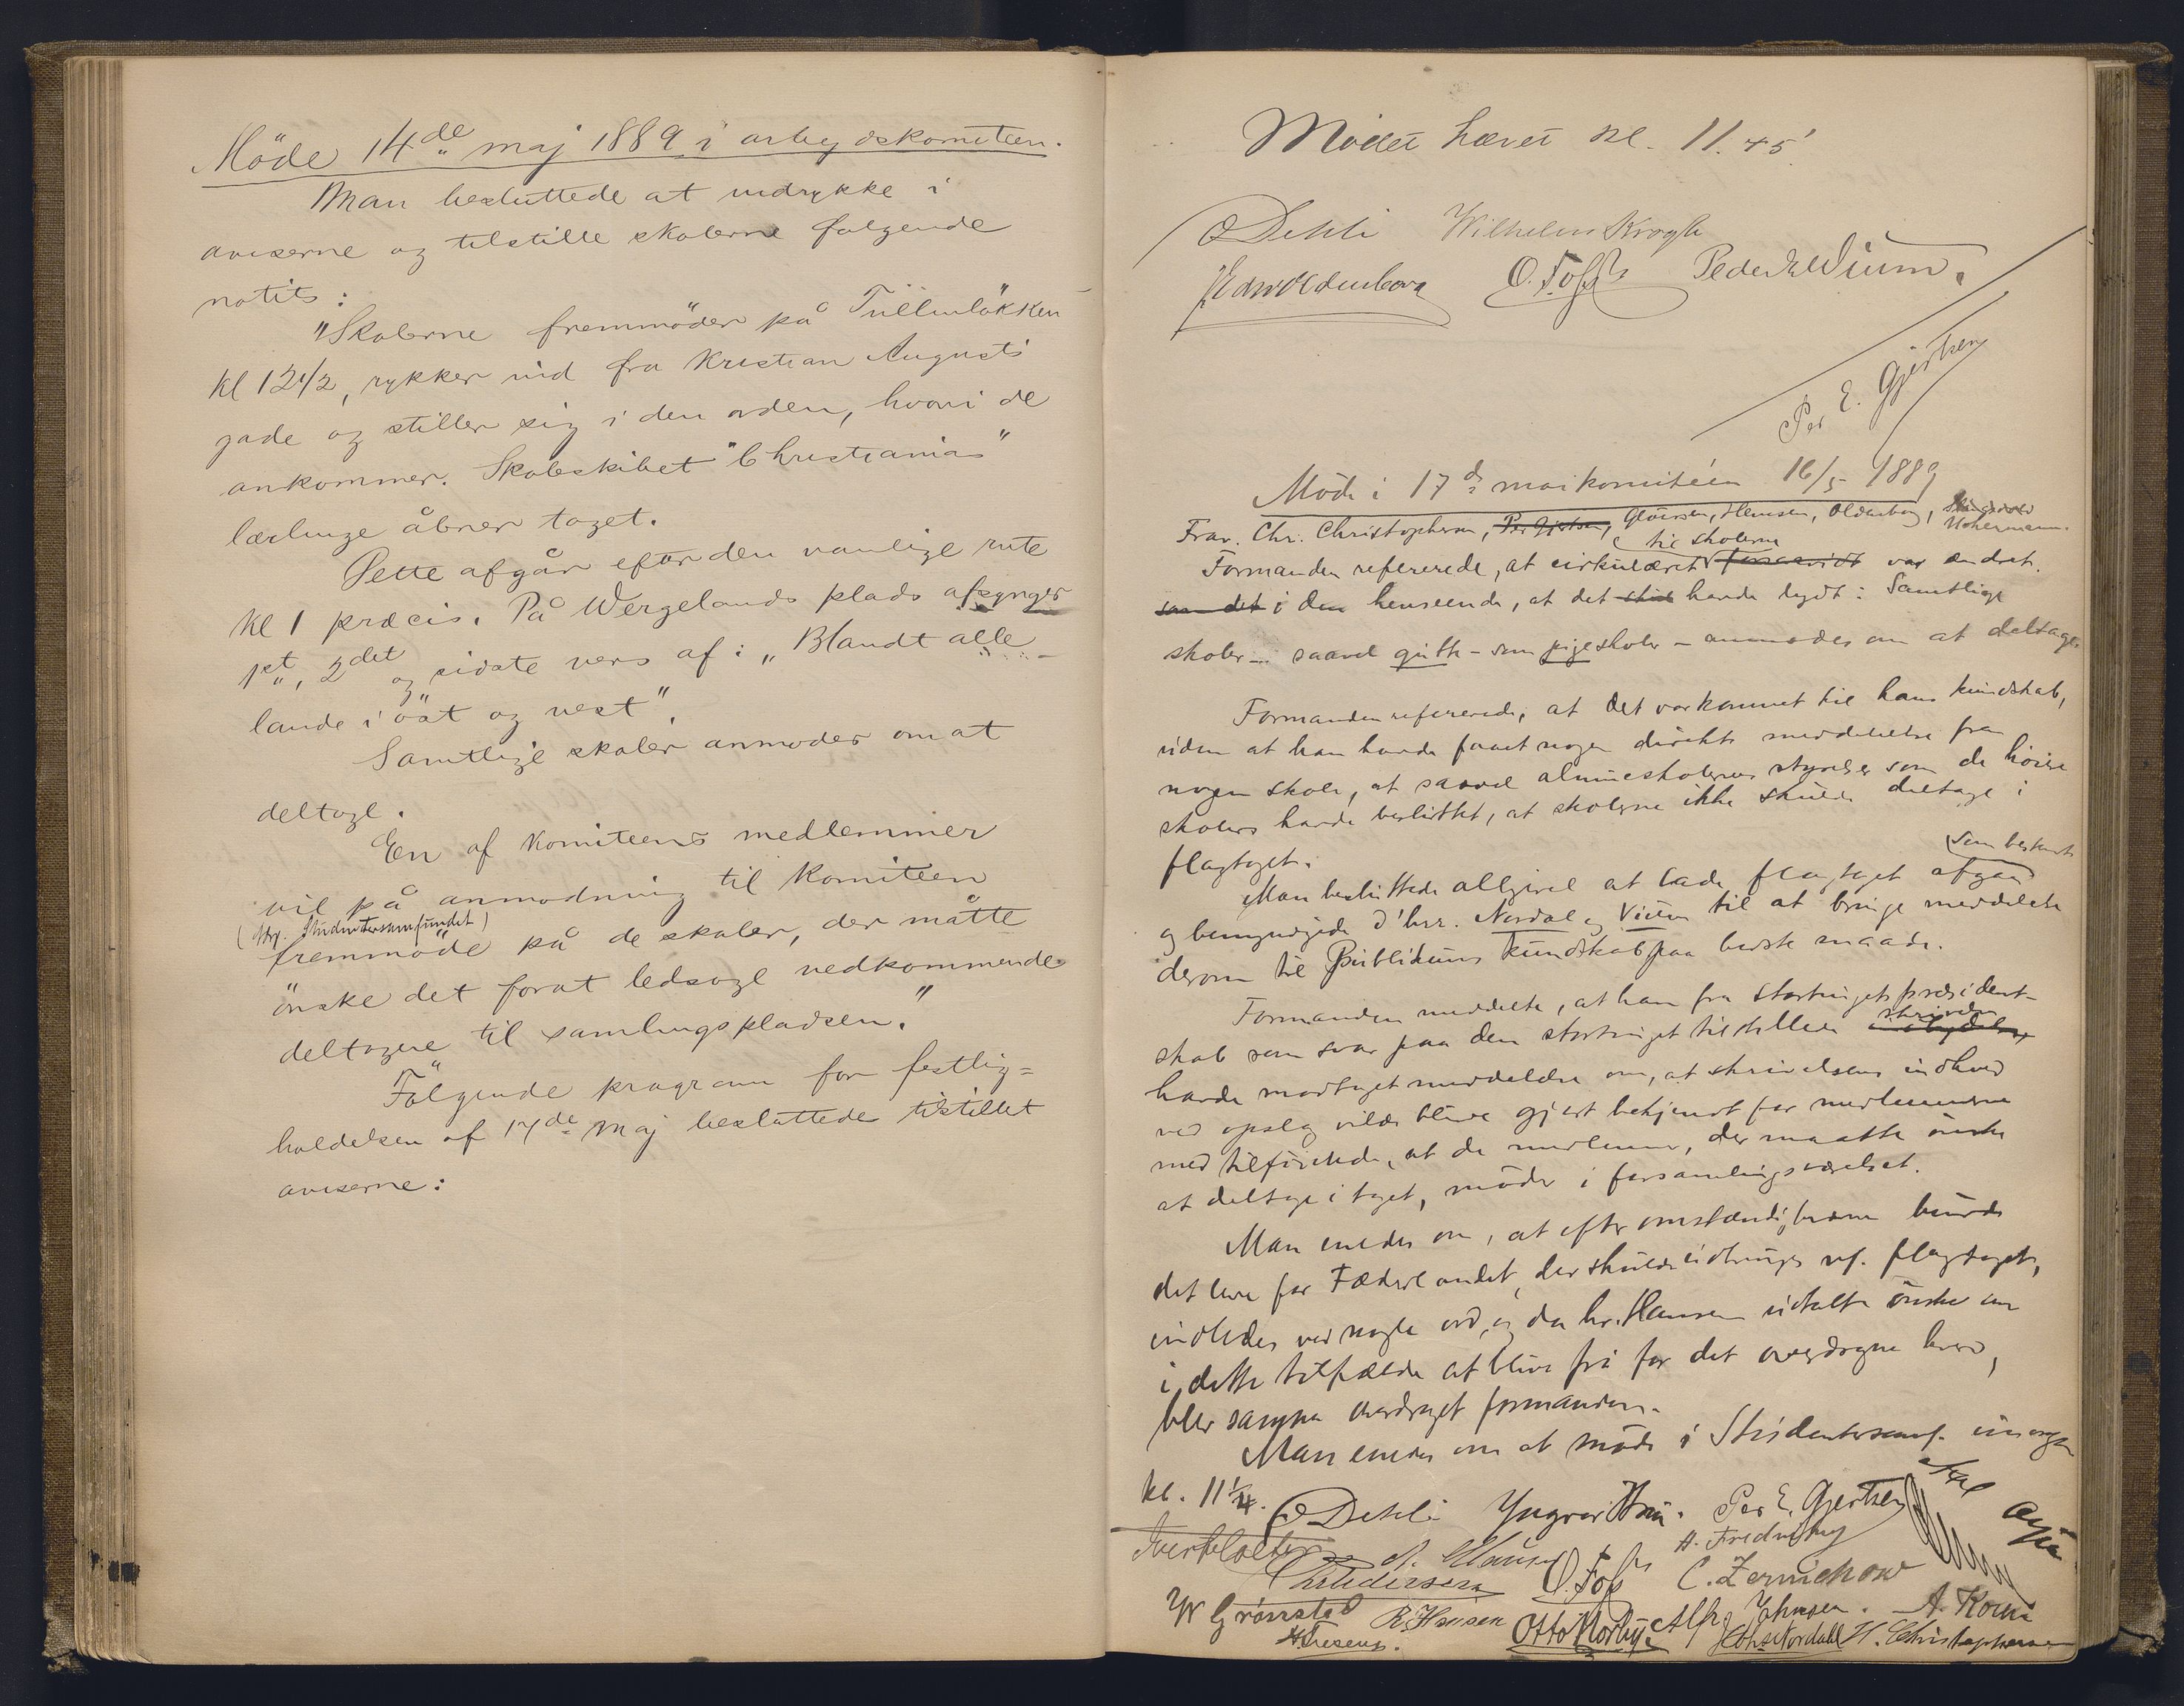 Möde 14de maj 1889 i arbejdskomiteen.
Man besluttede at indrykke i
aviserne og tilstille skolerne følgende
notits:
"Skolerne fremmöder på Tullinlökken
kl 12 1/2, rykker ind fra Kristian Augusts
gade og stiller sig i den orden, hvori de
ankommer. Skoleskibet "Christianias"
lærlinge åbner toget.
Dette afgår efter den vanlige rute
kl 1 præcis. På Wergelands plads afsynges
1st, 2det og sidste vers af: „Blandt alle
lande i öst og vest".
Samtlige skoler anmodes om at
deltage.
En af Komiteens medlemmer
vil på anmodning til Komiteen
(Adr. Studentersamfundet)
fremmöde på de skoler, der måtte
önske det forat ledsage vedkommende
deltagere til samlingspladsen."
Fölgende program for festlig=
holdelsen af 17de Maj besluttedes tilstillet
aviserne:
Mödet hævet kl. 11.45'.
O Dehli Wilhelm Krogh
Edw Oldenborg O. Foss Peder
Per E. Gjertsen
Möde i 17de maikomitéen 16/5 1889
Frav. Chr. Christophersen, Per Gjertsen, Hansen, Oldenborg,
til skolerne
Formanden refererede, at cirkulæret var ændret
som det i den henseende, at det havde lydt: Samtlige
skoler – saavel gutte- som pigeskoler – anmodes om at deltage.
Formanden refererede, at det var kommet til hans kundskab,
uden at han havde faaet nogen direkte meddelelse fra
nogen skole, at saavel almueskolernes styrelse som de höiere
skolers havde besluttet, at skolerne ikke skulde deltage i
flagtoget.
som bestemt
Man besluttede alligevel at lade flagtoget afgaa
og bemyndigede d'hrr. Nordal og til at bringe meddelelse
derom til Publikums kundskab paa bedste maade.
Formanden meddelte, at han fra Stortingets præsident-
skab som svar paa den stortinget tilstillede
skrivelse
havde modtaget meddelelse om, at skrivelsens indhold
ved opslag vilde blive gjort bekjendt for medlemmerne
med tilföiende, at de medlemmer, der maatte önske
at deltage i toget, möder i forsamlingsværelset.
Man enedes om, at efter omstændighederne burde
det leve for Fædrelandet, der skulde udbringes ved flagtoget,
indledes ved nogle ord, og da hr. Hansen udtalte önske om
i dette tilfælde at blive fri for det overdragne hverv,
blev samme overdraget formanden.
Man enedes om at möde i Studentersamf. imorgen
kl. 11 1/4.
O Dehli Yngvar Per E. Gjertsen
H.
O. Foss C. Zernichow
W Grönstad R. Hansen Otto Alfr. Johnsen. A.
Nordahl H. Christophersen